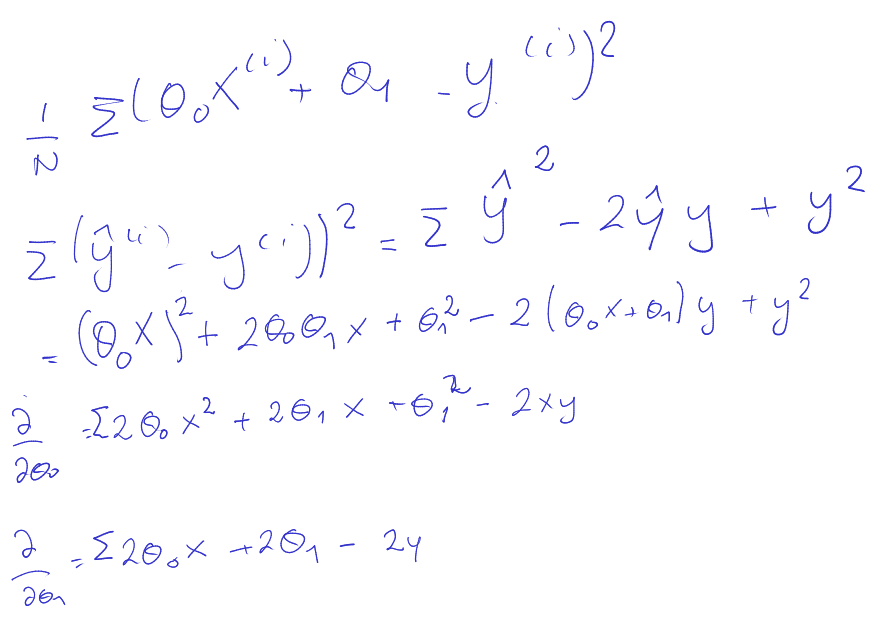 1/N Σ(θ₀x⁽ⁱ⁾ + θ₁ - y⁽ⁱ⁾)²
Σ(ŷ⁽ⁱ⁾ - y⁽ⁱ⁾)² = Σ ŷ² - 2ŷy + y²
= (θ₀x)² + 2θ₀θ₁x + θ₁² - 2(θ₀x+θ₁)y + y²
∂/∂θ₀ = Σ2θ₀x² + 2θ₁x + θ₁² - 2xy
∂/∂θ₁ = Σ2θ₀x + 2θ₁ - 2y